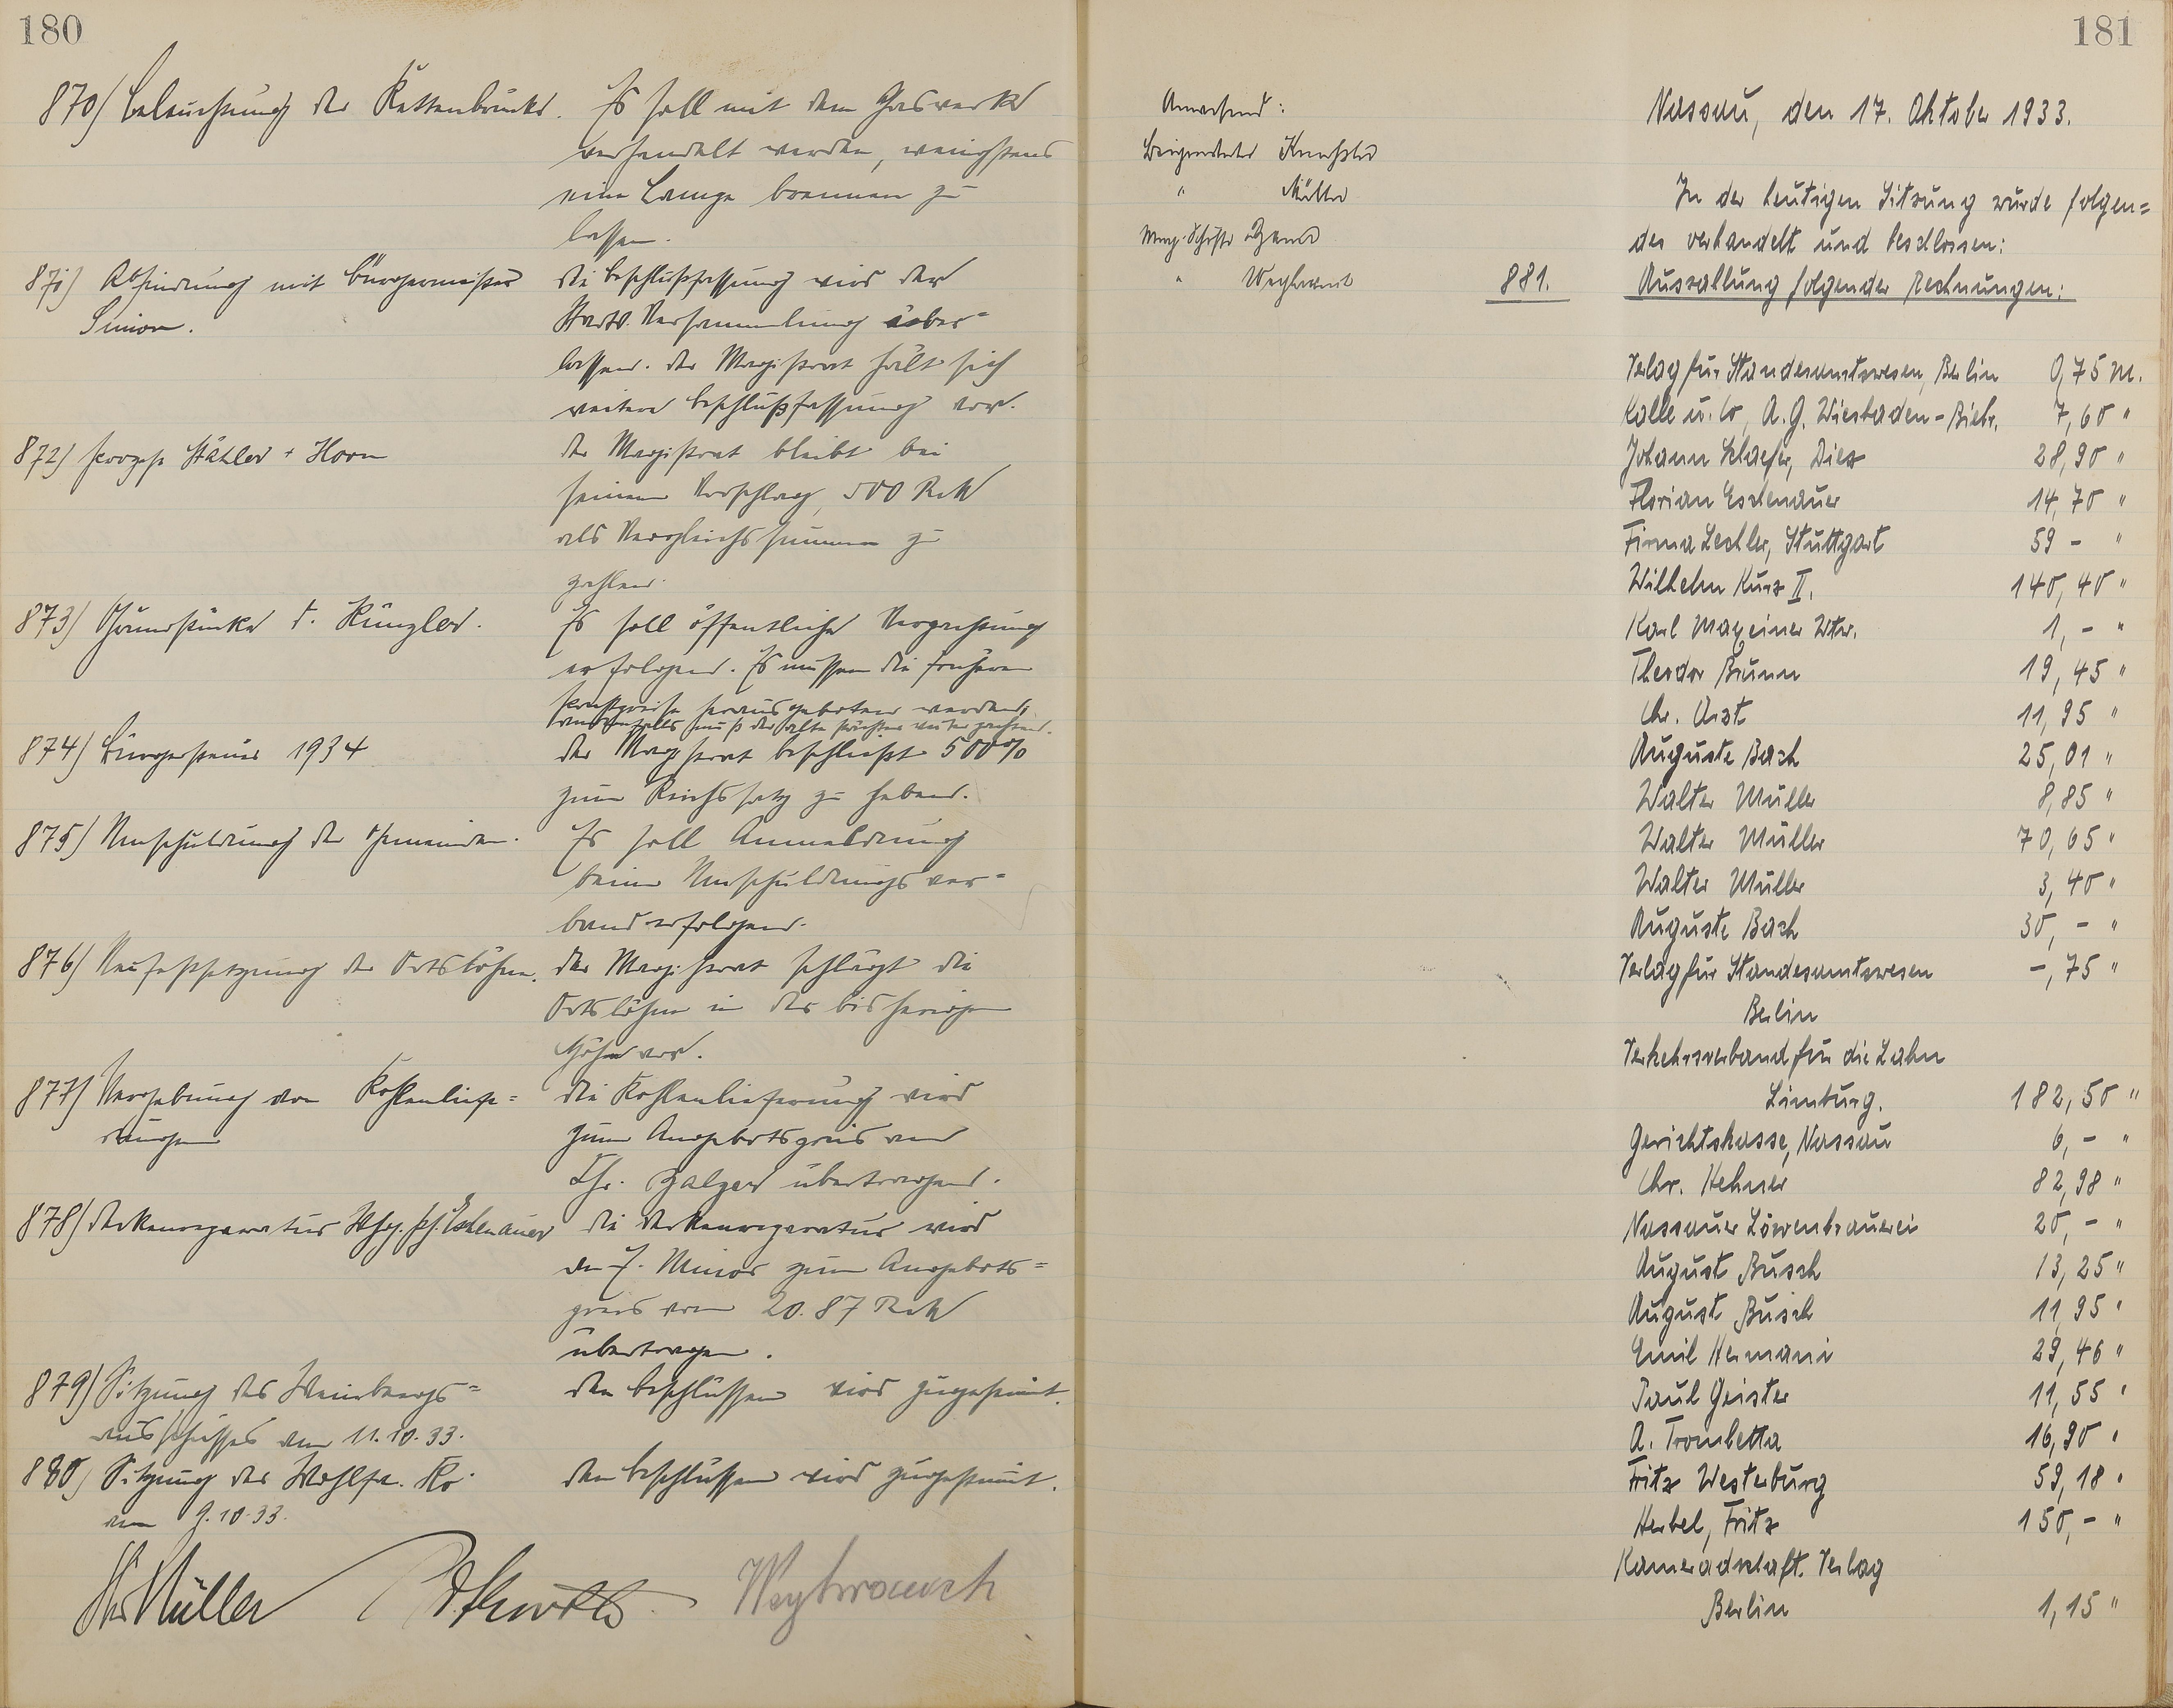 180
870) Beleuchtung der Kettenbrücke.
Es soll mit dem Gaswerk
verhandelt werden, wenigstens
eine Lampe brennen zu
lassen.
871) Abfindung mit Bürgermeister
Simon.
Die Beschlußfassung wird der
Stadtv. Versammlung über=
lassen. Der Magistrat hält sich
weitere Beschlußfassung vor.
872) Prozeß Stähler + Horn
Der Magistrat bleibt bei
seinem Vorschlag, 500 RM
als Vergleichssumme zu
zahlen.
873) Grundstücke d. Künzler.
Es soll öffentliche Verpachtung
erfolgen. Es müssen die früheren
Pachtpreise herausgeboten werden,
andernfalls muß der alte Pächter weiter zahlen.
874) Bürgersteuer 1934
Der Magistrat beschließt 500%
zum Reichssatz zu heben.
875) Umschuldung der Gemeinden.
Es soll Anmeldung
beim Umschuldungsver=
band erfolgen.
876) Neufestsetzung der Ortslöhne.
Der Magistrat schlägt die
Ortslöhne in der bisherigen
Höhe vor.
877) Vergebung von Kohlenliefe=
rungen
Die Kohlenlieferung wird
zum Angebotspreis an
Chr. Balzer übertragen.
878) Deckenreparatur Whg. Eschenauer
Die Deckenreparatur wird
an J. Minor zum Angebots=
preis von 20.87 RM
übertragen.
879) Sitzung des Weinbergs=
ausschusses vom 11.10.33.
Den Beschlüssen wird zugestimmt.
880) Sitzung der Wohlfa. Ko.
vom 9.10.33.
Den Beschlüssen wird zugestimmt.
Müller
Weybrauch
181
Anwesend:
Beigeordneter
" Müller
Mag. Schöffe
" Weybrauch
Nassau, den 17. Oktober 1933.
In der heutigen Sitzung wurde folgen=
des verhandelt und beschlossen:
881. Auszallung folgender Rechnungen:
Verlag für Standesamtswesen, Berlin 0,75 M.
Kalle u. Co, A.G. Wiesbaden-Biebr. 7,60 "
Johann Schaefer, Diez 28,90 "
Florian Eschenauer 14,70 "
Firma Lechler, Stuttgart 59 - "
Wilhelm Kurz II. 140,40 "
Karl Maxeiner Wtw. 1,- "
Theodor Brunn 19,45 "
Chr. Arzt 11,95 "
Auguste Bach 25,01 "
Walter Müller 8,85 "
Walter Müller 70,65 "
Walter Müller 3,40 "
Auguste Bach 30,- "
Verlag für Standesamtswesen -,75 "
Berlin
Verkehrsverband für die Lahn
Limburg. 182,50 "
Gerichtskasse, Nassau 6,- "
Chr. Hehner 82,98 "
Nassauer Löwenbrauerei 20,- "
August Busch 13,25 "
August Busch 11,95 "
Emil Hermani 29,46 "
Paul Geister 11,55 "
A. Trombetta 16,90 "
Fritz Westerburg 59,18 "
Herbel, Fritz 150,- "
Kameradschaft. Verlag
Berlin 1,15 "